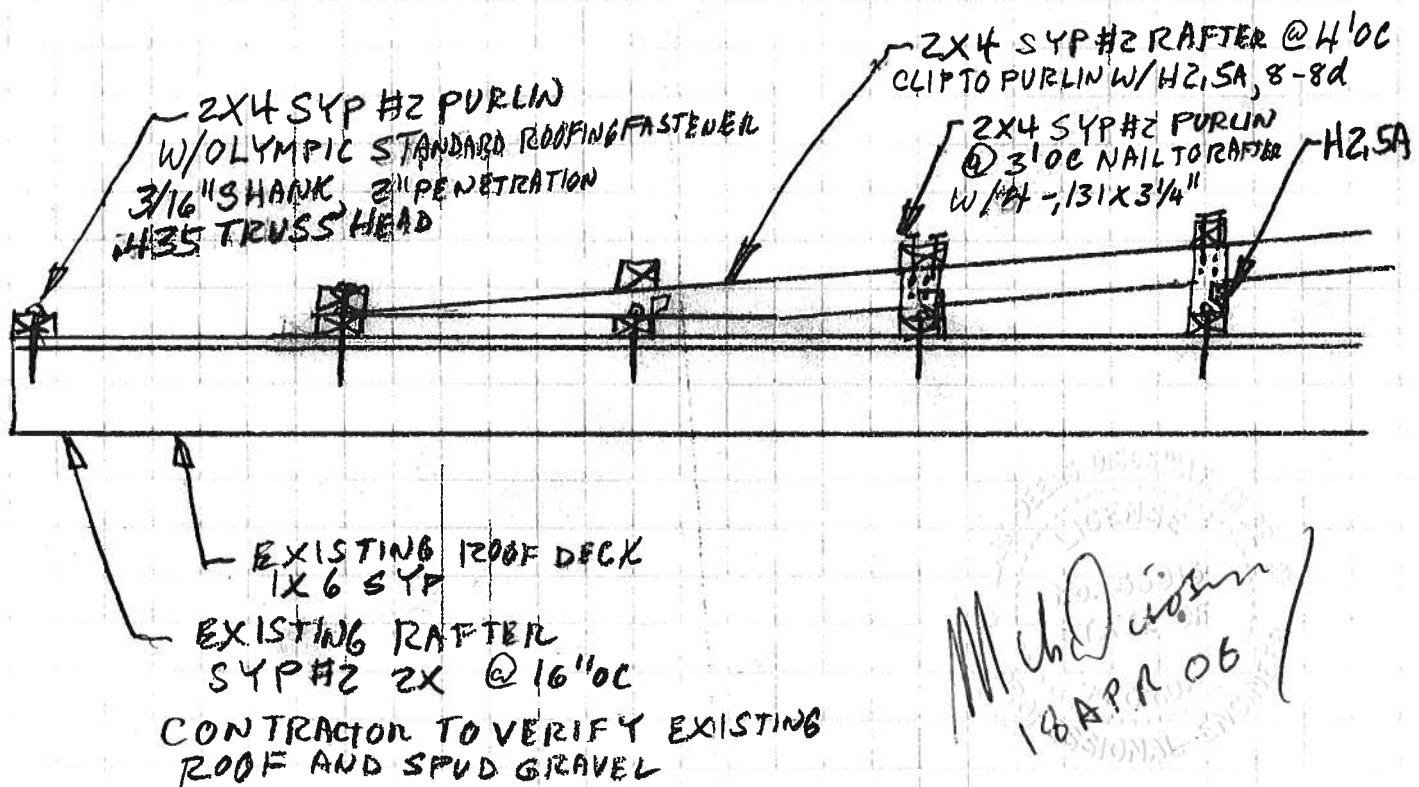 2X4 SYP #2 PURLIN
W/OLYMPIC STANDARD ROOFING FASTENER
3/16" SHANK, 2" PENETRATION
.435 TRUSS HEAD
2X4 SYP #2 RAFTER @ 4'OC
CLIP TO PURLIN W/H2,5A, 8-8d
2X4 SYP #2 PURLIN
@ 3'OC NAIL TO RAFTER
W/ -,131X3¼"
H2,5A
EXISTING ROOF DECK
1X6 SYP
EXISTING RAFTER
SYP #2 2X @ 16"OC
CONTRACTOR TO VERIFY EXISTING
ROOF AND SPUD GRAVEL
18 APR 06